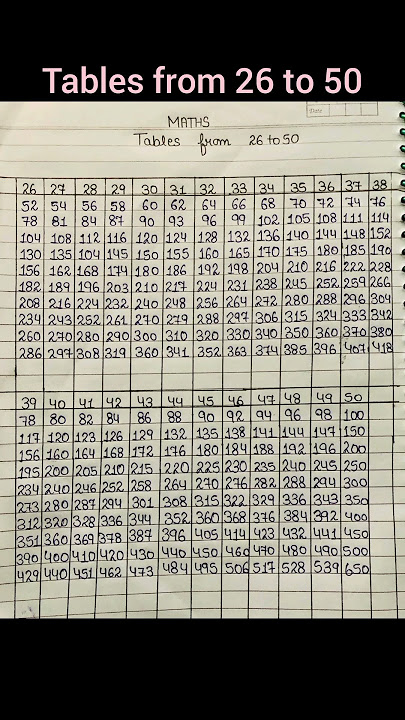 Tables from 26 to 50
Date
MATHS
Tables from 26 to 50
26 27 28 29 30 31 32 33 34 35 36 37 38
52 54 56 58 60 62 64 66 68 70 72 74 76
78 81 84 87 90 93 96 99 102 105 108 111 114
104 108 112 116 120 124 128 132 136 140 144 148 152
130 135 104 145 150 155 160 165 170 175 180 185 190
156 162 168 174 180 186 192 198 204 210 216 222 228
182 189 196 203 210 217 224 231 238 245 252 259 266
208 216 224 232 240 248 256 264 272 280 288 296 304
234 243 252 261 270 279 288 297 306 315 324 333 342
260 270 280 290 300 310 320 330 340 350 360 370 380
286 297 308 319 360 341 352 363 374 385 396 407 418
39 40 41 42 43 44 45 46 47 48 49 50
78 80 82 84 86 88 90 92 94 96 98 100
117 120 123 126 129 132 135 138 141 144 147 150
156 160 164 168 172 176 180 184 188 192 196 200
195 200 205 210 215 220 225 230 235 240 245 250
234 240 246 252 258 264 270 276 282 288 294 300
273 280 287 294 301 308 315 322 329 336 343 350
312 320 328 336 344 352 360 368 376 384 392 400
351 360 369 378 387 396 405 414 423 432 441 450
390 400 410 420 430 440 450 460 470 480 490 500
429 440 451 462 473 484 495 506 517 528 539 650